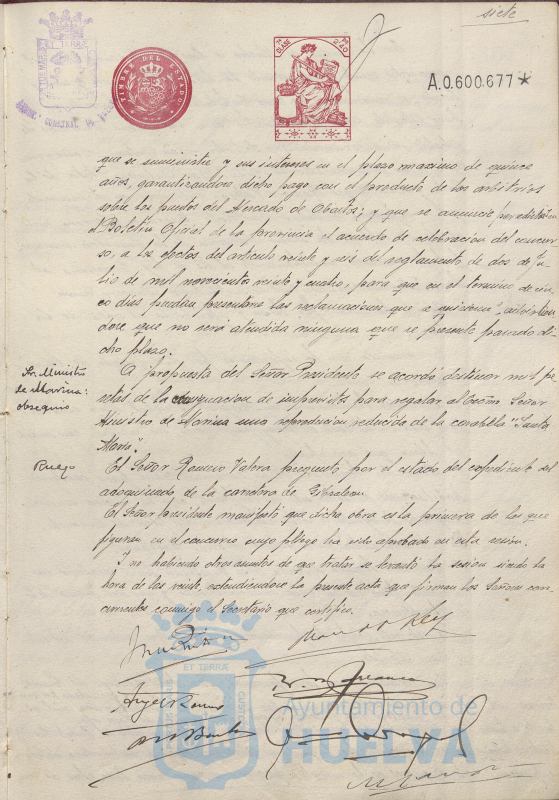 siete
TIMBRE DEL ESTADO
CLASE
A.0.600.677*
que se suministre y sus intereses en el plazo maximo de quince
años, garantizandose dicho pago con el producto de los arbitrios
sobre los puestos del Mercado de Abastos; y que se anuncie por edictos en
el Boletin Oficial de la provincia el acuerdo de celebracion del concur-
so, a los efectos del articulo veinte y seis del reglamento de dos de Ju-
lio de mil novecientos veinte y cuatro, para que en el termino de cin-
co dias puedan presentarse las reclamaciones que se quisieran, advirtien-
dose que no será atendida ninguna que se presente pasado di-
cho plazo.
Sr. Ministro
de Marina:
obsequio
A propuesta del Señor Presidente se acordó destinar mil pe-
setas de la consignacion de imprevistos para regalar al Excmo Señor
Ministro de Marina una reproduccion reducida de la carabela "Santa
Maria".
Ruego
El Señor Romero Valera preguntó por el estado del expediente del
adoquinado de la carretera de Gibraleon.
El Señor Presidente manifestó que dicha obra es la primera de las que
figuran en el concurso cuyo pliego ha sido aprobado en esta sesion.
Y no habiendo otros asuntos de que tratar se levantó la sesion siendo la
hora de las veinte, extendiendose la presente acta que firman los Señores con-
currentes conmigo el Secretario que certifico.
ET TERRÆ
CUSTODIA
Ayuntamiento de
HUELVA